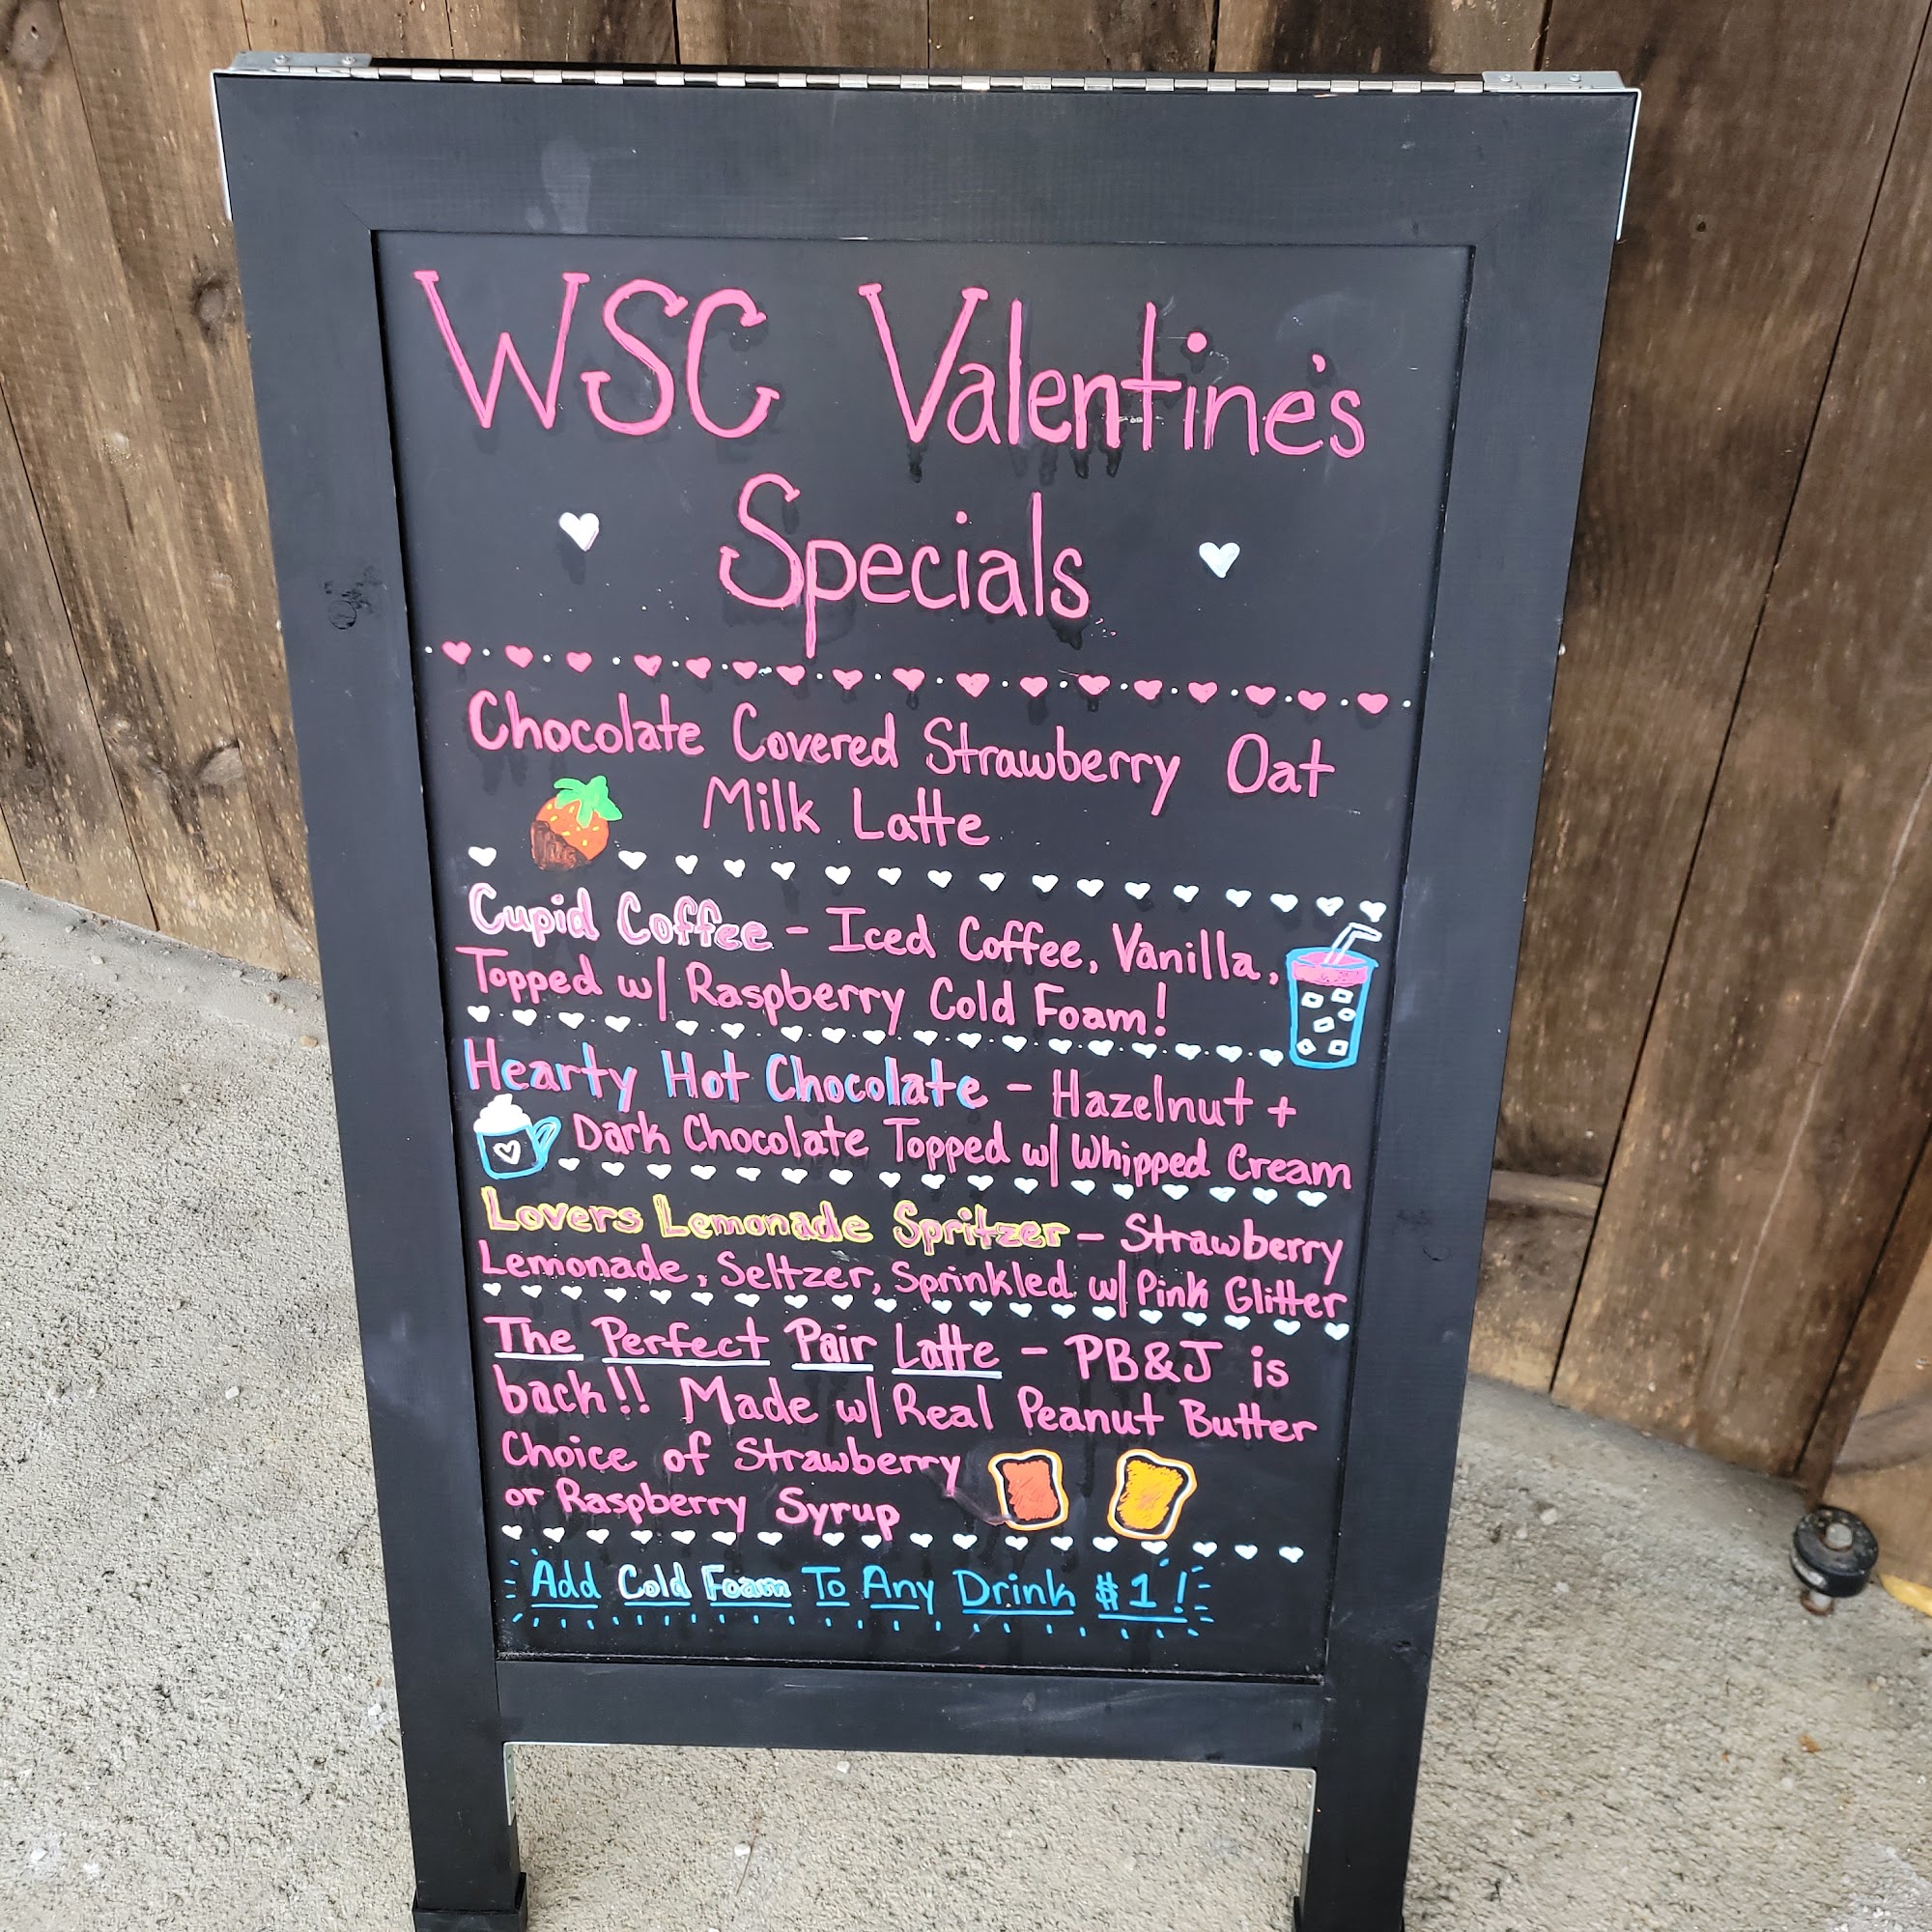 WSC Valentine's
Specials
Chocolate Covered Strawberry Oat
Milk Latte
Cupid Coffee - Iced Coffee, Vanilla,
Topped w/ Raspberry Cold Foam!
Hearty Hot Chocolate - Hazelnut +
Dark Chocolate Topped w/ Whipped Cream
Lovers Lemonade Spritzer - Strawberry
Lemonade, Seltzer, Sprinkled w/ Pink Glitter
The Perfect Pair Latte - PB&J is
back!! Made w/ Real Peanut Butter
Choice of Strawberry
or Raspberry Syrup
Add Cold Foam To Any Drink $1!